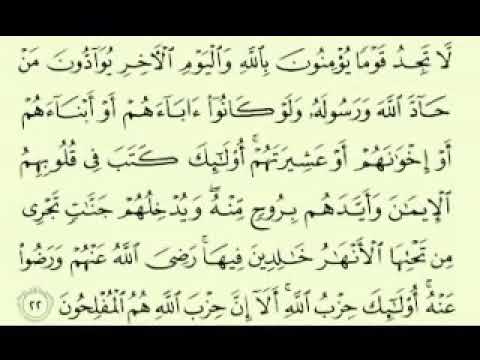 لَّا تَجِدُ قَوْمًا يُؤْمِنُونَ بِٱللَّهِ وَٱلْيَوْمِ ٱلْأَخِرِ يُوَآدُّونَ مَنْ
حَآدَّ ٱللَّهَ وَرَسُولَهُۥ وَلَوْ كَانُوٓا۟ ءَابَآءَهُمْ أَوْ أَبْنَآءَهُمْ
أَوْ إِخْوَٰنَهُمْ أَوْ عَشِيرَتَهُمْ ۚ أُو۟لَٰٓئِكَ كَتَبَ فِى قُلُوبِهِمُ
ٱلْإِيمَٰنَ وَأَيَّدَهُم بِرُوحٍ مِّنْهُ ۖ وَيُدْخِلُهُمْ جَنَّٰتٍ تَجْرِى
مِن تَحْتِهَا ٱلْأَنْهَٰرُ خَٰلِدِينَ فِيهَا ۚ رَضِىَ ٱللَّهُ عَنْهُمْ وَرَضُوا۟
عَنْهُ ۚ أُو۟لَٰٓئِكَ حِزْبُ ٱللَّهِ ۚ أَلَآ إِنَّ حِزْبَ ٱللَّهِ هُمُ ٱلْمُفْلِحُونَ ٢٢